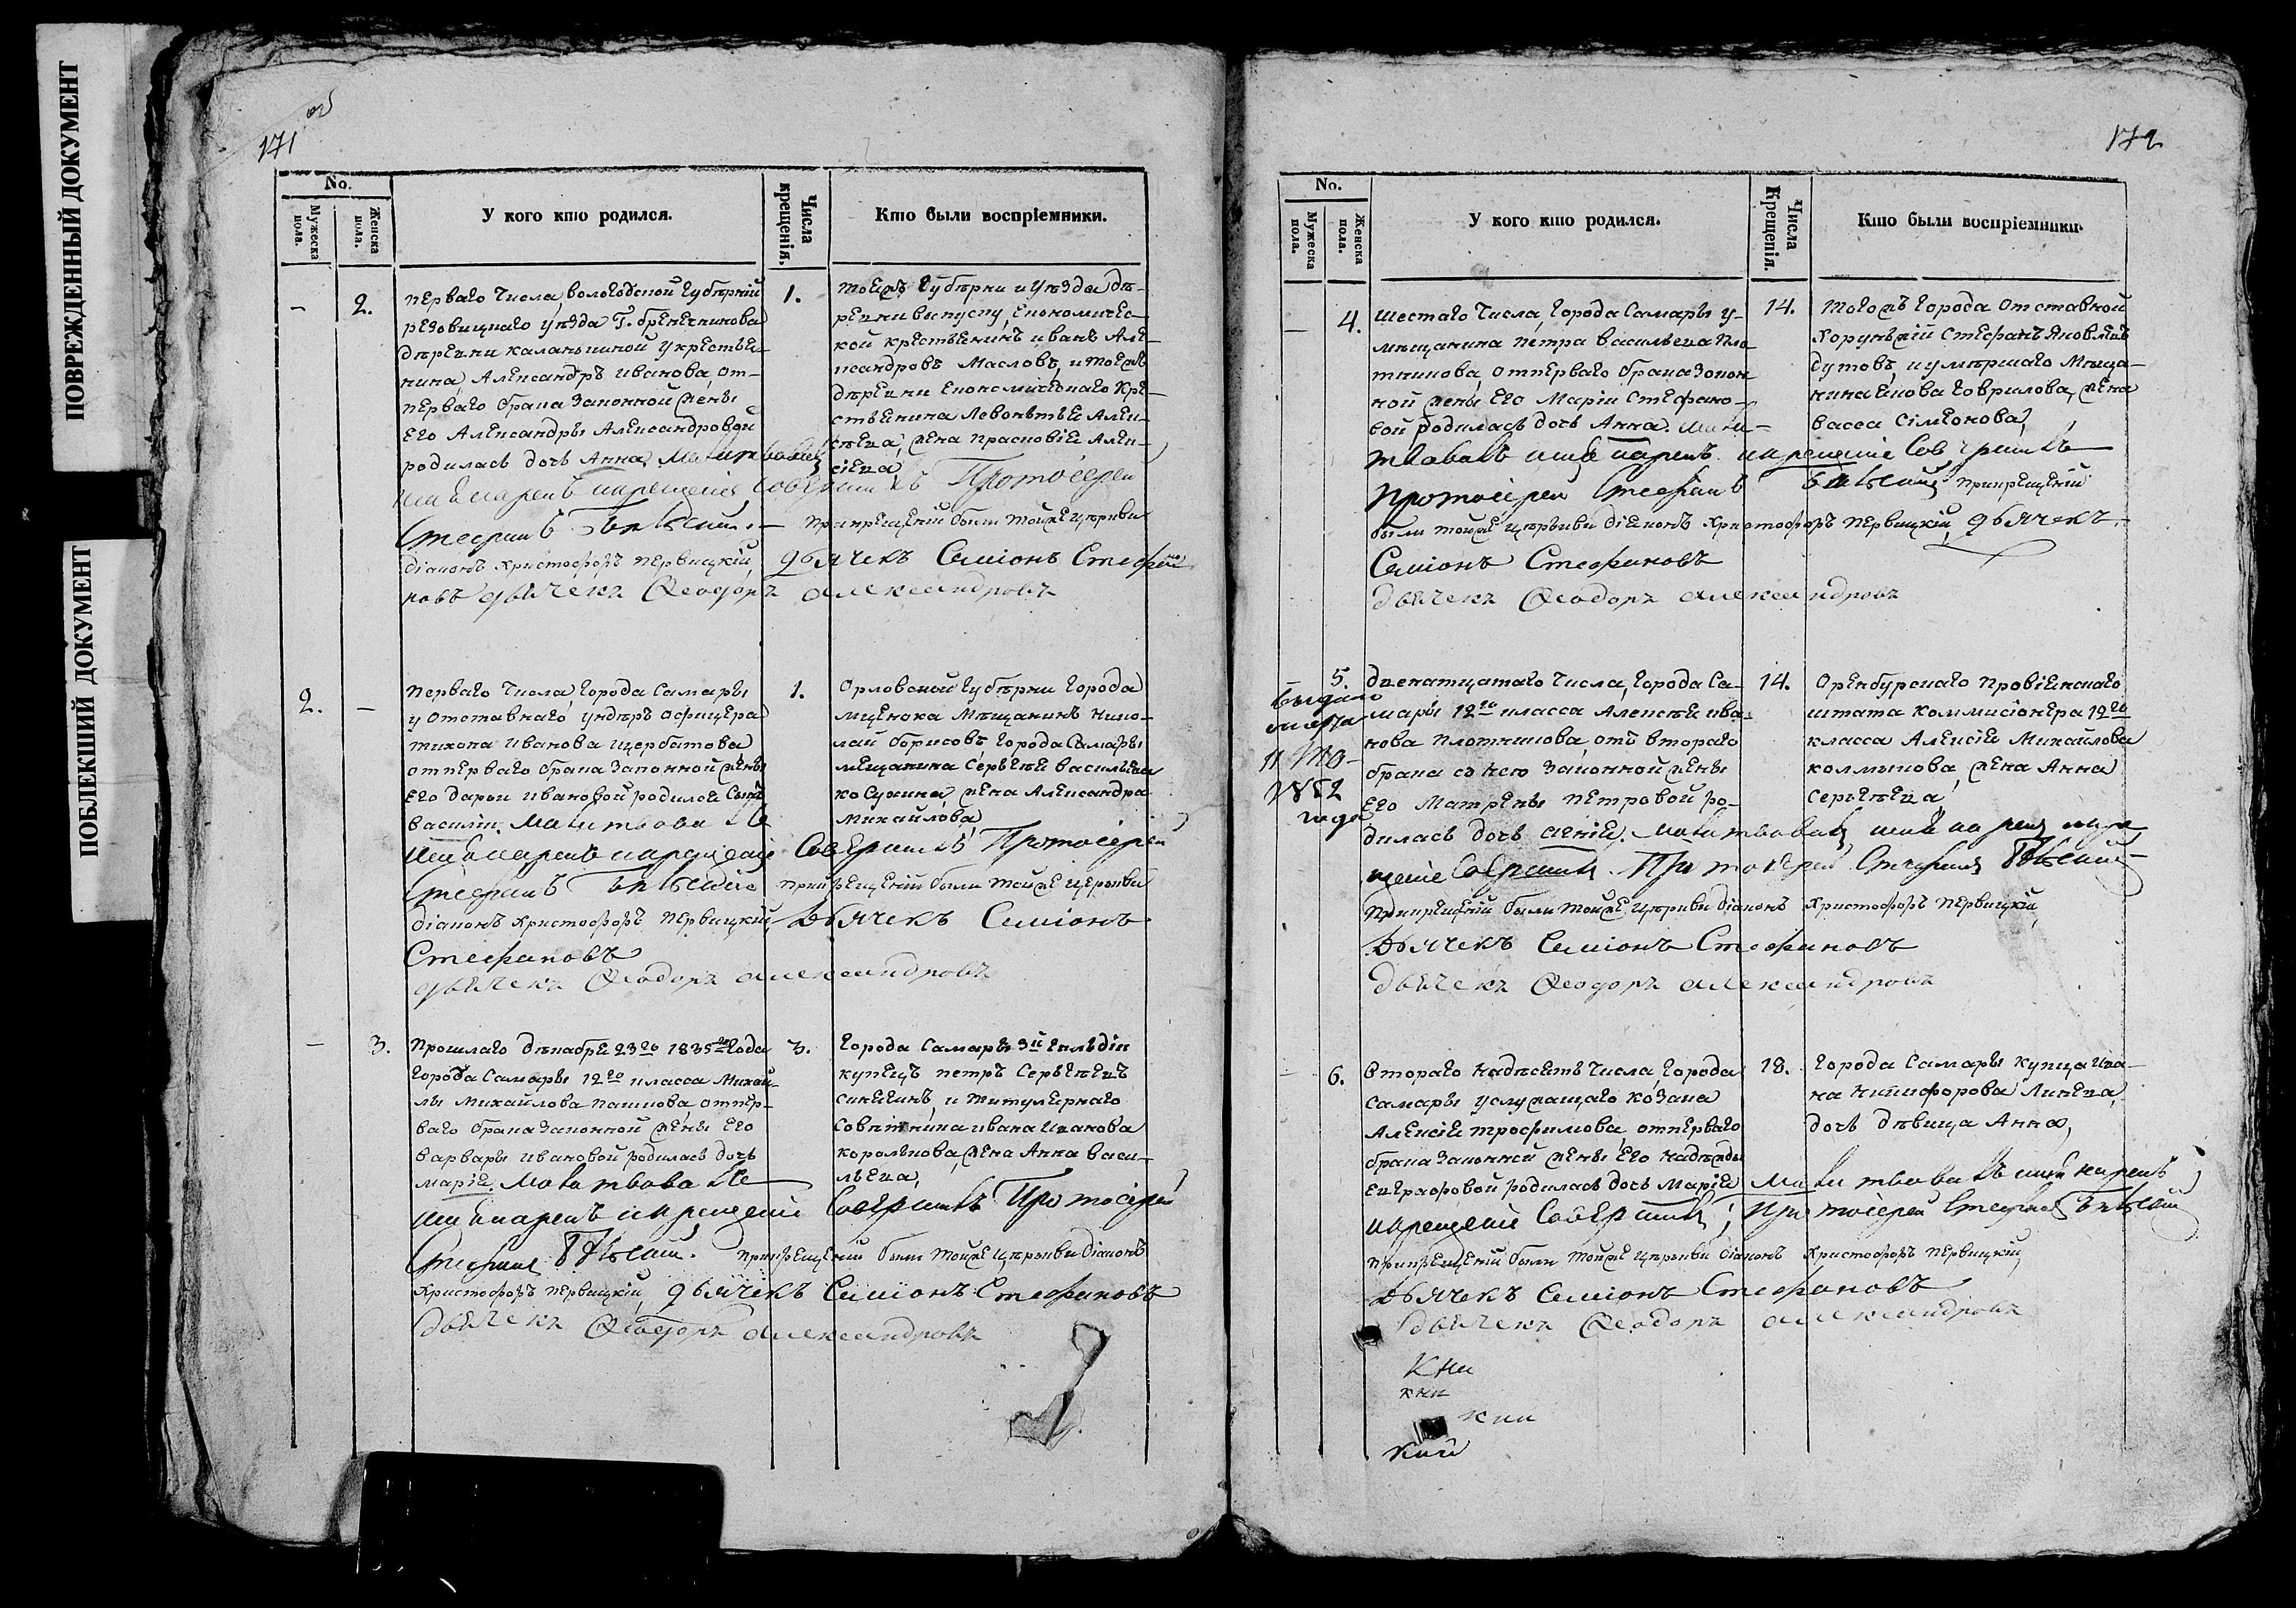 ПОВРЕЖДЕННЫЙ ДОКУМЕНТ
ПОБЛЕКШИЙ ДОКУМЕНТ
171 об
No.
Мужеска пола.
Женска пола.
У кого кто родился.
Числа крещенія.
Кто были воспріемники.
2.
перваго Числа, вологодской губѣрній
уѣзда Г. брѢнчининова
дѣрѣвни калачьниной у крестьѣ-
нина АлеѢсандръ иванова, от-
перваго брака Законной жены
Его Александры Александровой
родилась дочь Анна, Молитвовалъ
имя нарекъ и крещеніе Совершилъ Протоіерей
Стефанъ Бѣльскій.
При крещеній были тойже церкви
діаконъ Христофоръ Первицкій, дьячекъ Семіонъ Стефа-
новъ дьячекъ Ѳеодоръ александровъ
1.
тоежъ губѣрни и уѣзда дѣ-
ревни выпуску, Економичес-
кой крестьенинъ иванъ Але-
ксандровъ Масловъ, и тоежъ
дѣревни Економическаго Кре-
стьенина Левонътьѣ Алек-
сѣева, жена Прасковіѣ Алек-
сіева
2.
Перваго Числа, города Самары
у отставнаго ундѣръ офицера
тихона иванова щербатова,
отперваго брака Законной жены
Его дарьи ивановой родился Сынъ
василій. Молитвовалъ
имя нарекъ и крещеніе Совершилъ Протоіерей
Стефанъ Бѣльскій
При крещеній были тойже церкви
діаконъ Христофоръ Первицкій, дьячекъ Семіонъ
Стефановъ
дьячекъ Ѳеодоръ александровъ
1.
Орловской губѣрни города
мценска Мѣщанинъ Нико-
лай борисовъ, города Самары
мещанина Сергѣѣ васильѣва
косухина, жена Александра
Михайлова
3.
Прошлаго дѣкабря 23го 1835го года
города Самары 12го класса Михай-
лы Михайлова пашкова, отпер-
ваго брака Законной жены Его
варвары ивановой родилась дочь
маріѣ. Молитвовалъ
имя нарекъ и крещеніе Совершилъ Протоіерей
Стефанъ Бѣльскій. При крещеній были тойже церкви діаконъ
Христофоръ Первицкій, дьячекъ Семіонъ Стефановъ
дьячекъ Ѳеодоръ александровъ
3.
города Самары 3й гильдіи
купецъ петръ Сергѣевъ
синегинъ, и титулярнаго
Совѣтника ивана иванова
королькова, жена Анна васи-
льева,
172
No.
Мужеска пола.
Женска пола.
У кого кто родился.
Числа Крещенія.
Кто были воспріемники.
4.
шестаго Числа, города Самары у-
мѣщанина петра васильева пло-
тникова, отперваго брака Закон-
ной жены Его Маріи Стефано-
вой родилась дочь Анна. Моли-
твовалъ имя нарекъ и крещеніе Совершилъ
Протоіерей Стефанъ Бѣльскій При крещеній
были тойже церкви діаконъ Христофоръ Первицкій, дьячекъ
Семіонъ Стефановъ
дьячекъ Ѳеодоръ александровъ
14.
тогожъ города отставной
Хорунжій Стефанъ Яковлевъ
дутовъ, и умѣршаго Мѣща-
нина Якова гаврилова, жена
васса Сімеонова,
5.
11 1852 года
двенатцатаго Числа, города Са-
мары 12го класса Алексѣѣ ива-
нова плотникова, отъ втораго
брака съ нею Законной жены
Его Матрены петровой ро-
дилась дочь Агніѣ. Молитвовалъ имя нарекъ и кре-
щеніе Совершилъ Протоіерей Стефанъ Бѣльскій
При крещеній были тойже церкви діаконъ Христофоръ Первицкій
дьячекъ Семіонъ Стефановъ
дьячекъ Ѳеодоръ александровъ
14.
Оренбурскаго провіенскаго
штата коммисіонера 12го
класса Алексіѣ Михайлова
колмыкова, жена Анна
Сергѣева,
6.
втораго надѣсеть Числа, города
Самары услужащаго козака
Алексіѣ трофимова, отперваго
брака Законной жены Его надежды
родилась дочь Маріѣ Молитвовалъ имя нарекъ
и крещеніе Совершилъ, Протоіерей Стефанъ Бѣльскій
При крещеній были тойже церкви діаконъ Христофоръ Первицкій
дьячекъ Семіонъ Стефановъ
дьячекъ Ѳеодоръ александровъ
18.
города Самары купца ива-
на никифорова Линева,
дочь дѣвица Анна,
Кни
кни
кни